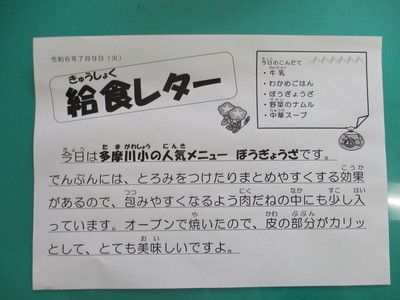 令和6年7月9日（火）
きゅうしょく
給食レター
今日のこんだて
・牛乳
・わかめごはん
・ぼうぎょうざ
・野菜のナムル
・中華スープ
今日は多摩川小の人気メニュー ぼうぎょうざです。
でんぷんには、とろみをつけたりまとめやすくする効果
があるので、包みやすくなるよう肉だねの中にも少し入
っています。オーブンで焼いたので、皮の部分がカリッ
として、とても美味しいですよ。